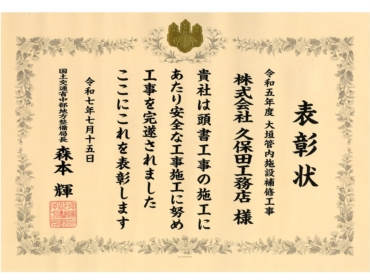 表彰状
令和五年度 大垣管内施設補修工事
株式会社 久保田工務店 様
貴社は頭書工事の施工に
あたり安全な工事施工に努め
工事を完遂されました
ここにこれを表彰します
令和七年七月十五日
国土交通省中部地方整備局長 森本 輝